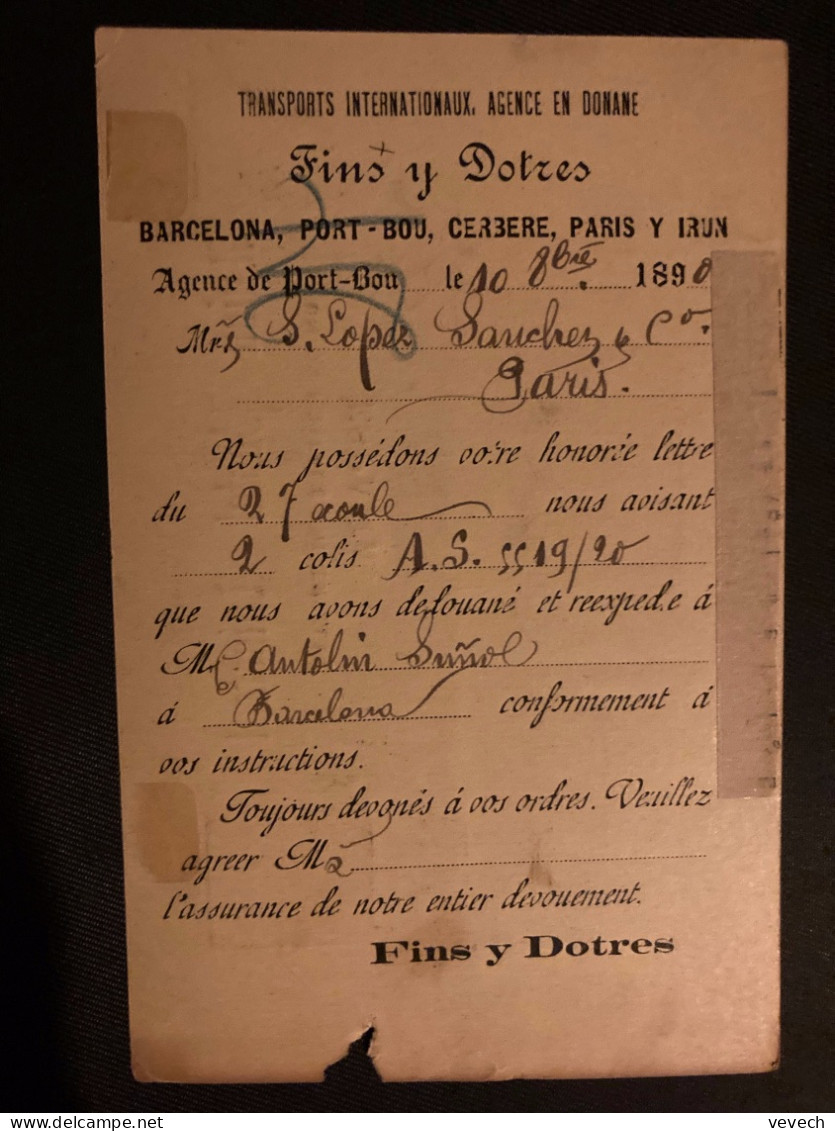 TRANSPORTS INTERNATIONAUX. AGENCE EN DONANE
Fins y Dotres
BARCELONA, PORT-BOU, CERBERE, PARIS Y IRUN
Agence de Port-Bou le 10 8bre 1890
Mrs S. Lopez Sanchez & Co.
Paris.
Nous possédons votre honorée lettre
du 27 nous avisant
2 colis A.S. 5519/20
que nous avons dedouané et reexpedie á
Mr. Antolin Suñol
á Barcelona conformement á
vos instructions.
Toujours devonés á vos ordres. Veuillez
agreer Mrs
l'assurance de notre entier devouement.
Fins y Dotres
vevech